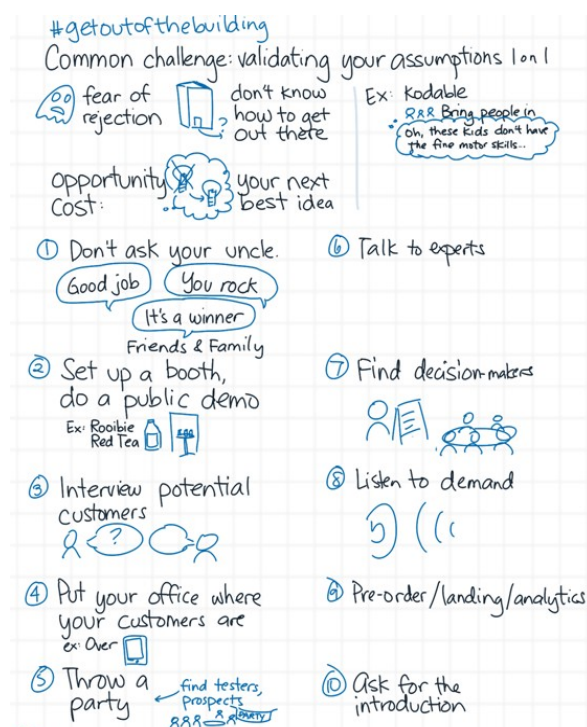 #getoutofthebuilding
Common challenge: validating your assumptions 1 on 1
fear of
rejection
don't know
how to get
out there
?
Ex: Kodable
Bring people in
Oh, these kids don't have
the fine motor skills...
opportunity
cost:
your next
best idea
① Don't ask your uncle.
Good job
You rock
It's a winner
Friends & Family
② Set up a booth,
do a public demo
Ex: Rooibie
Red Tea
③ Interview potential
customers
?
④ Put your office where
your customers are
ex: Over
⑤ Throw a
party
find testers,
prospects
PARTY
⑥ Talk to experts
⑦ Find decision-makers
⑧ Listen to demand
⑨ Pre-order/landing/analytics
⑩ Ask for the
introduction